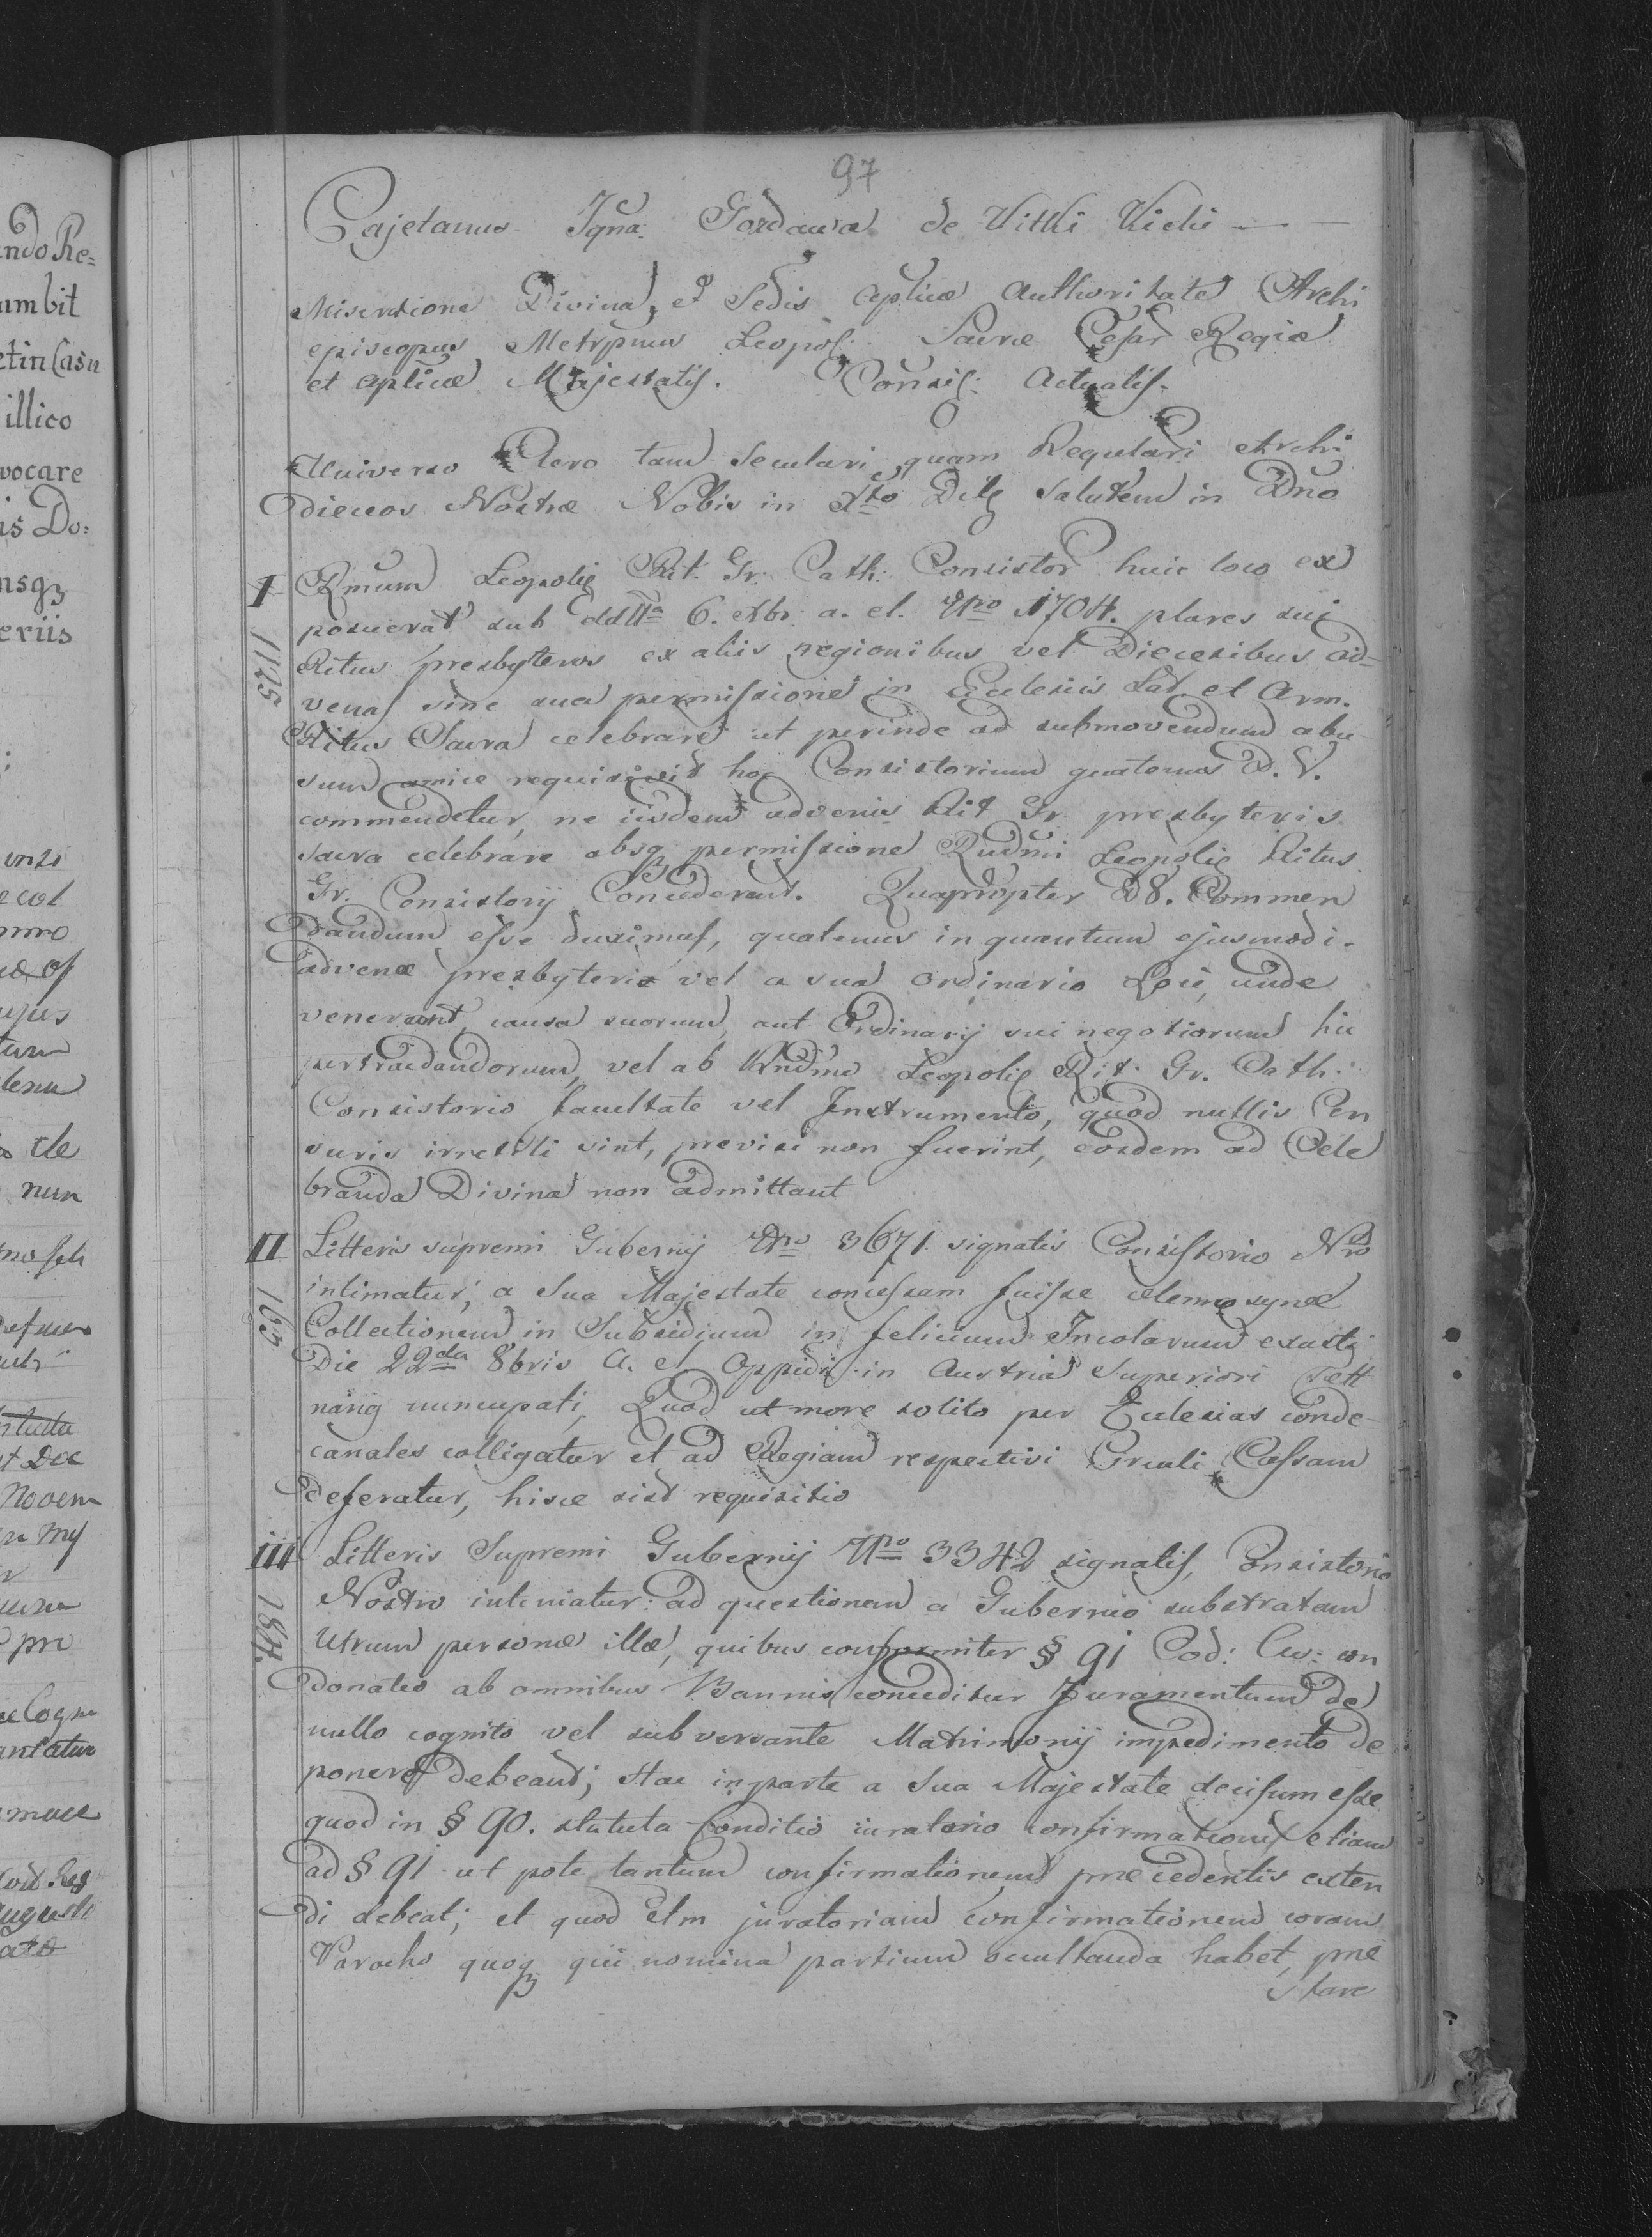 97
Cajetanus Igna. Gozdawa de Kitki Kicki
Miseratione Divina, et Sedis Aplicæ Authoritate Archi
episcopus Metrpnus Leopol: Sacræ Cesar Regiæ
et Aplicæ Majestatis. Consil: Actualis.
Universo Clero tam Seculari, quam Regulari Archi
dieceos Nostræ Nobis in Xto Dil salutem in Dno
I Rmum Leopolie Rit. Gr. Cath. Consistor huic loco ex
posuerat sub dd 6. Xbr. a. el. Nro 1704. plures sui
1125
Ritus presbyteros ex aliis regionibus vel Diecesibus ad-
venas sine sua permissione in Ecclesiis Lat et Arm.
Ritus Sacra celebrare ut perinde ad submovendum abu
sum amice requisivit hoc Consistorium quatenus D. V.
commendetur, ne iisdem advenis Rit Gr. presbyteris
sacra celebrare absq permissione Rudmi Leopolie Ritus
Gr. Consistorij Concederent. Quapropter D8. Commen
dandum esse duximus, quatenus in quantum ejusmodi
advenæ presbyteri vel a suo Ordinario Loci, unde
venerunt, causa suorum, aut Ordinarij sui negotiorum hic
pertractandorum, vel ab Rndmo Leopolie Rit. Gr. Cath.
Consistorio facultate vel Instrumento, quod nullis Cen
suris irretiti sint, previsi non fuerint, eosdem ad Cele
branda Divina non admittant
II Litteris supremi Gubernij Nro 3671 signatis Consistorio Nro
intimatur, a Sua Majestate concessam fuisse elemosynæ
163
Collectionem in Subsidium in felicium Incolarum exusti
Die 22da 8bris a. el. Oppidi in Austria Superiori Tett
nang nuncupati, Quod ut more solito per Ecclesias conde-
canales colligatur et ad Regiam respectivi Circuli Cassam
deferatur, hisce sist requisitio
III Litteris Supremi Gubernij Nro 3342 signatis, Consistorio
Nostro intimatur: ad questionem a Gubernio substratam
184.
Utrum personæ illæ, quibus conformiter § 91 Cod: Civ: con
donatio ab omnibus Bannis conceditur Juramentum de
nullo cognito vel subversante Matrimonij impedimento de
ponere debeant; Hac in parte a Sua Majestate decisum esse
quod in § 90. statuta Conditio iuratorio confirmationis etiam
ad § 91 ut pote tantum confirmationem præcedentis exten
di debeat; et quod Etm juratoriam confirmationem coram
Parocho quoq qui nomina partium occultanda habet, præ
stare